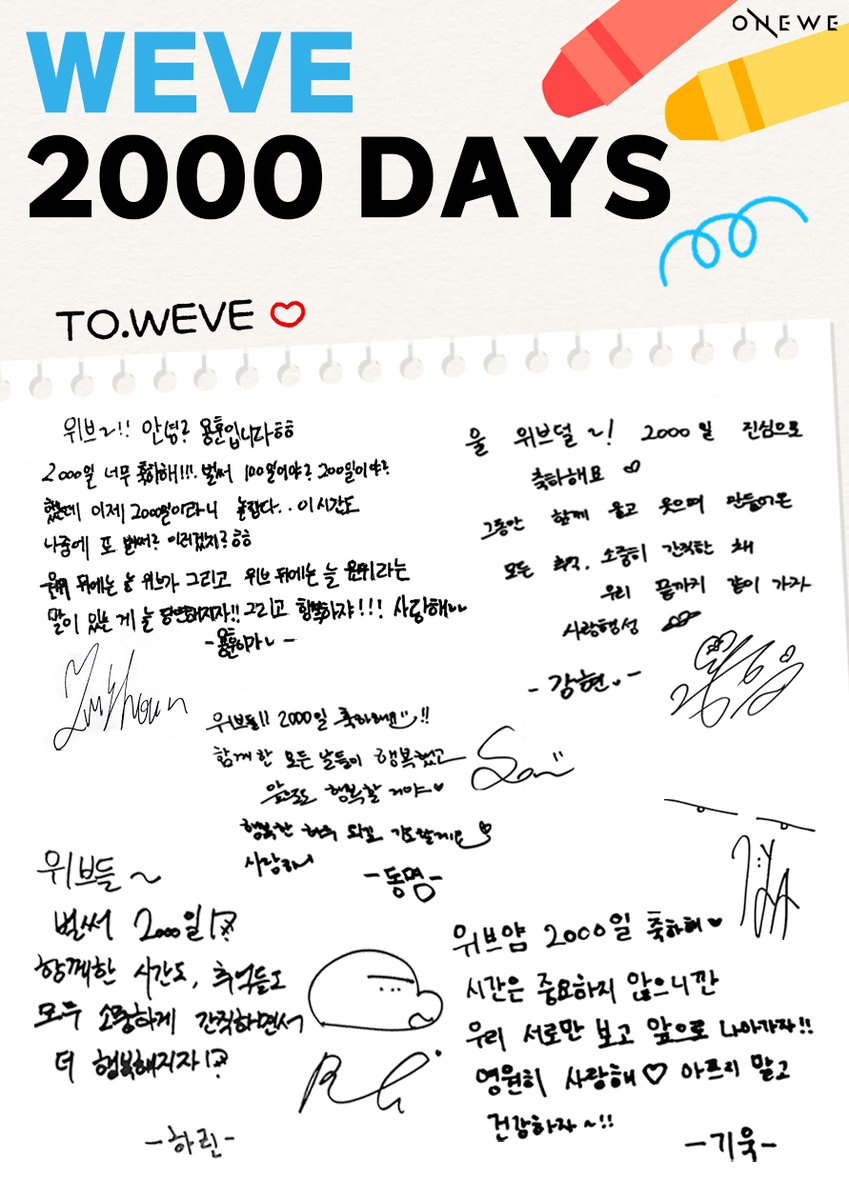 ONEWE
WEVE
2000 DAYS
TO.WEVE ♡
위브~!! 안녕? 용훈입니다ㅎㅎ
2000일 너무 축하해!!!. 벌써 100일이야? 200일이야?
했는데 이제 2000일이라니 놀랍다.. 이 시간도
나중에 또 벌써? 이러겠지?ㅎㅎ
원위 뒤에는 늘 위브가 그리고 위브 뒤에는 늘 원위라는
말이 있는 게 늘 당연해지자!! 그리고 행복하자!!! 사랑해~
-용훈이가~-
울 위브덜~! 2000일 진심으로
축하해요 ♡
그동안 함께 울고 웃으며 만들어온
모든 추억, 소중히 간직한 채
우리 끝까지 같이 가자
사랑행성
-강현♡-
위브들!! 2000일 축하해!!
함께한 모든 날들이 행복했고
앞으로도 행복할 거야♥
행복한 하루 되고
사랑해
-동명-
위브들~
벌써 2000일!?
함께한 시간도, 추억들도
모두 소중하게 간직하면서
더 행복해지자!?
-하린-
위브얌 2000일 축하해♥
시간은 중요하지 않으니깐
우리 서로만 보고 앞으로 나아가자!!
영원히 사랑해♡ 아프지 말고
건강하자~!!
-기욱-